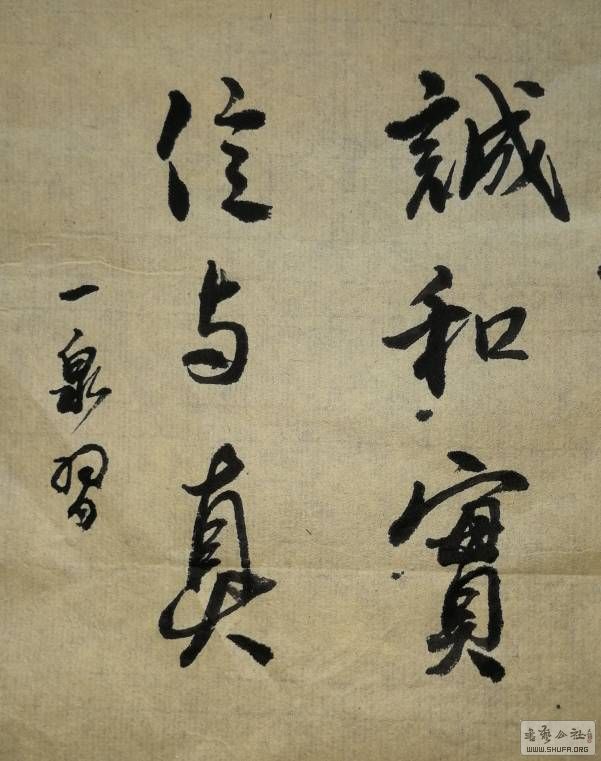 誠和實
信与真
一泉習
書藝公社
WWW.SHUFA.ORG